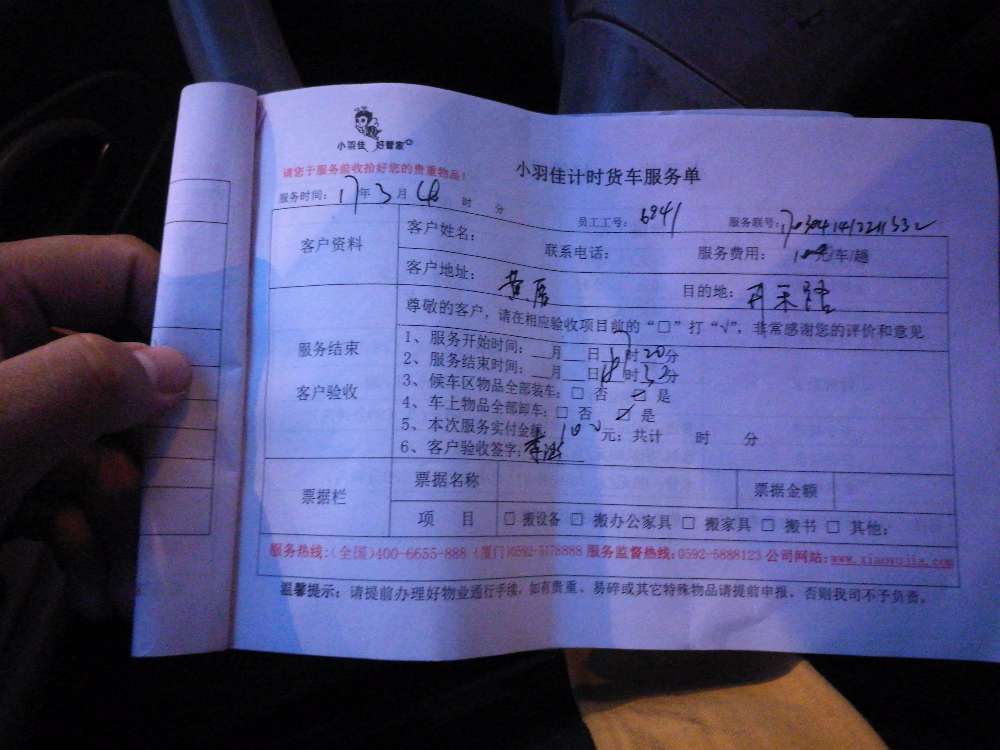 小羽佳 好管家
请您于服务前收拾好您的贵重物品！
小羽佳计时货车服务单
服务时间：17年3月 时 分
员工工号：6841
服务联号：
客户资料
客户姓名： 联系电话： 服务费用： /车/趟
客户地址： 目的地：
尊敬的客户，请在相应验收项目前的“□”打“√”，非常感谢您的评价和意见
服务结束
客户验收
1、服务开始时间：__月__日 时20分
2、服务结束时间：__月__日18时32分
3、候车区物品全部装车：□ 否 ☑ 是
4、车上物品全部卸车：□ 否 ☑ 是
5、本次服务实付金额：100元；共计 时 分
6、客户验收签字：
票据栏
票据名称 票据金额
项 目 □ 搬设备 □ 搬办公家具 □ 搬家具 □ 搬书 □ 其他：
服务热线：（全国）400-6655-888（厦门）0592-5178888 服务监督热线：0592-5888123 公司网站：www.xiaoyujia.com
温馨提示：请提前办理好物业通行手续，如有贵重、易碎或其它特殊物品请提前申报，否则我司不予负责。